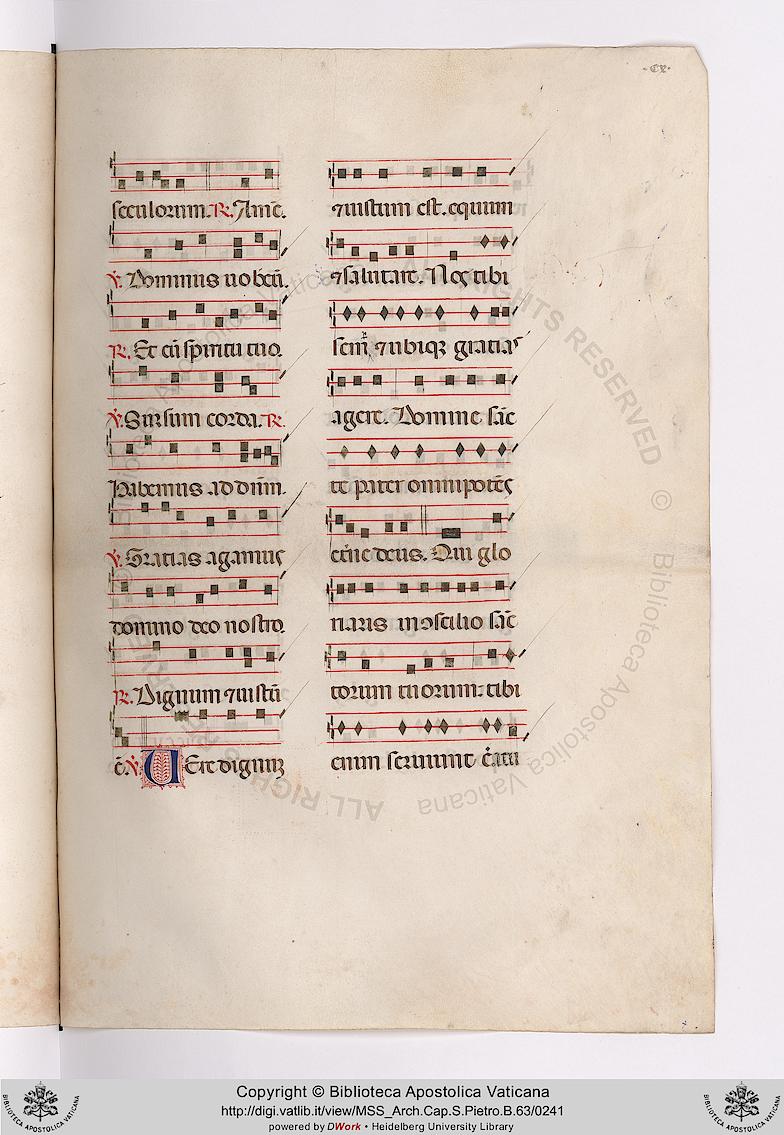 ·cx·
seculorum. R. Amē.
V. Dominus uobcū.
R. Et cū spiritu tuo.
V. Sursum corda. R.
Habemus ad dūm.
V. Gratias agamus
domino deo nostro.
R. Dignum ⁊ iustū
ē. V. UEre dignuȝ
⁊ iustum est. equum
⁊ salutare. Nos tibi
semꝑ ⁊ ubiqꝫ gratias
agere. Domine sāc
te pater omnipotēs
etrēne deus. Qui glo
riaris in ɔcilio sāc
torum tuorum. tibi
enim seruiunt
ALL RIGHTS RESERVED
©
Biblioteca Apostolica Vaticana
Copyright © Biblioteca Apostolica Vaticana
http://digi.vatlib.it/view/MSS_Arch.Cap.S.Pietro.B.63/0241
powered by DWork • Heidelberg University Library
BIBLIOTECA APOSTOLICA VATICANA
BIBLIOTECA APOSTOLICA VATICANA